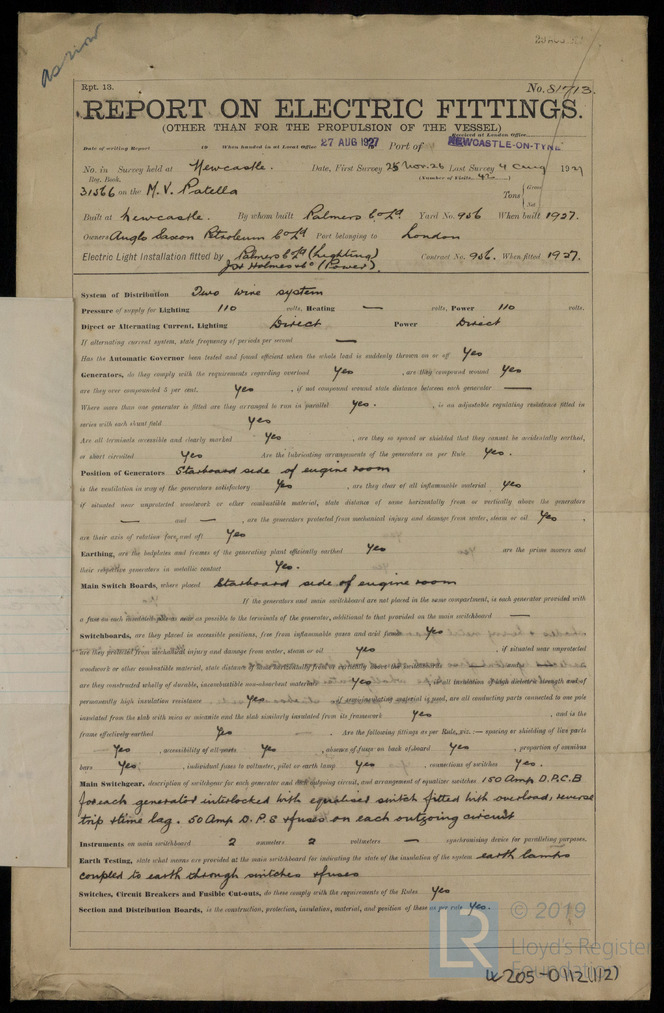 as now
Rpt. 13.
No. 81713.
REPORT ON ELECTRIC FITTINGS.
(OTHER THAN FOR THE PROPULSION OF THE VESSEL)
Received at London Office
Date of writing Report 19 When handed in at Local Office 27 AUG 1927 Port of NEWCASTLE-ON-TYNE
No. in Survey held at Newcastle. Date, First Survey 25 Nov. 26 Last Survey 4 Aug 1927
Reg. Book. (Number of Visits 42)
31566 on the M.V. Patella Tons { Gross Net
Built at Newcastle. By whom built Palmers Co Ld. Yard No. 956 When built 1927.
Owners Anglo Saxon Petroleum Co Ld Port belonging to London
Electric Light Installation fitted by Palmers Co Ld (Lighting) Contract No. 956. When fitted 1927.
J.H. Holmes & Co (Power).
System of Distribution Two wire system
Pressure of supply for Lighting 110 volts, Heating — volts, Power 110 volts.
Direct or Alternating Current, Lighting Direct Power Direct
If alternating current system, state frequency of periods per second —
Has the Automatic Governor been tested and found efficient when the whole load is suddenly thrown on or off Yes
Generators, do they comply with the requirements regarding overload Yes, are they compound wound Yes
are they over compounded 5 per cent. Yes, if not compound wound state distance between each generator —
Where more than one generator is fitted are they arranged to run in parallel Yes., is an adjustable regulating resistance fitted in
series with each shunt field Yes
Are all terminals accessible and clearly marked Yes, are they so spaced or shielded that they cannot be accidentally earthed,
or short circuited Yes Are the lubricating arrangements of the generators as per Rule Yes.
Position of Generators Starboard side of engine room,
is the ventilation in way of the generators satisfactory Yes, are they clear of all inflammable material Yes
if situated near unprotected woodwork or other combustible material, state distance of same horizontally from or vertically above the generators
— and —, are the generators protected from mechanical injury and damage from water, steam or oil Yes,
are their axis of rotation fore and aft Yes
Earthing, are the bedplates and frames of the generating plant efficiently earthed Yes are the prime movers and
their respective generators in metallic contact Yes.
Main Switch Boards, where placed Starboard side of engine room
If the generators and main switchboard are not placed in the same compartment, is each generator provided with
a fuse on each insulated pole as near as possible to the terminals of the generator, additional to that provided on the main switchboard —
Switchboards, are they placed in accessible positions, free from inflammable gases and acid fumes Yes
are they protected from mechanical injury and damage from water, steam or oil Yes, if situated near unprotected
woodwork or other combustible material, state distance of same horizontally from or vertically above the switchboards
are they constructed wholly of durable, incombustible non-absorbent materials Yes, is all insulation of high dielectric strength and of
permanently high insulation resistance Yes, if semi-insulating material is used, are all conducting parts connected to one pole
insulated from the slab with mica or micanite and the slab similarly insulated from its framework Yes, and is the
frame effectively earthed Yes. Are the following fittings as per Rule, viz. :— spacing or shielding of live parts
Yes, accessibility of all parts Yes, absence of fuses on back of board Yes, proportion of omnibus
bars Yes, individual fuses to voltmeter, pilot or earth lamp Yes, connections of switches Yes.
Main Switchgear, description of switchgear for each generator and each outgoing circuit, and arrangement of equalizer switches 150 Amp D.P.C.B
for each generator interlocked with equaliser switch fitted with overload, reverse
trip & time lag. 50 Amp D.P.S & fuses on each outgoing circuit
Instruments on main switchboard 2 ammeters 2 voltmeters — synchronising device for paralleling purposes.
Earth Testing, state what means are provided at the main switchboard for indicating the state of the insulation of the system earth lamps
coupled to earth through switches & fuses
Switches, Circuit Breakers and Fusible Cut-outs, do these comply with the requirements of the Rules Yes
Section and Distribution Boards, is the construction, protection, insulation, material, and position of these as per rule Yes.
LR
© 2019
Lloyd's Register
Foundation
W205-0112(1/2)